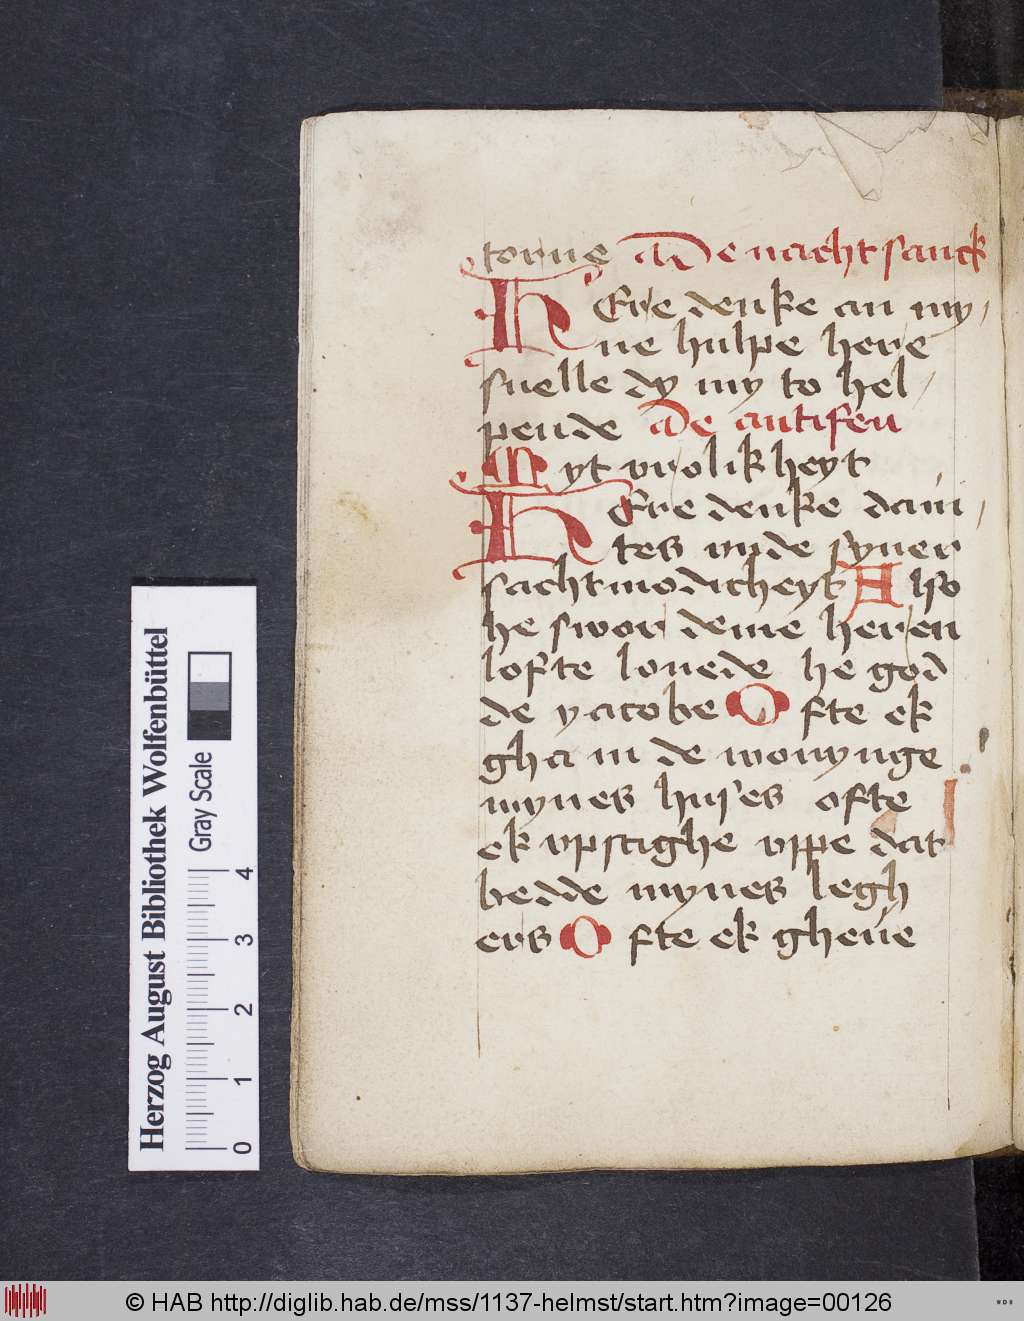 torne ade nacht sanck
HEre denke an my,
ne hulpe here
snelle dy my to hel,
pende ade antifen
Myt vrolikheyt
HEre denke daui,
tes vnde syner
sachtmodicheyt Also
he swor deme heren
lofte louede he god
de yacobe Ofte ek
gha in de wonynge
mynes huses ofte
ek vpstighe vppe dat
bedde mynes legh
ers Ofte ek gheue
Herzog August Bibliothek Wolfenbüttel
Gray Scale
0 1 2 3 4
© HAB http://diglib.hab.de/mss/1137-helmst/start.htm?image=00126